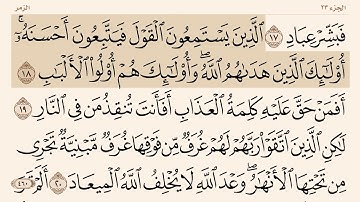 الجزء ٢٣ الزمر
فَبَشِّرْ عِبَادِ ١٧ ٱلَّذِينَ يَسْتَمِعُونَ ٱلْقَوْلَ فَيَتَّبِعُونَ أَحْسَنَهُۥٓ ۚ
أُو۟لَـٰٓئِكَ ٱلَّذِينَ هَدَىٰهُمُ ٱللَّهُ ۖ وَأُو۟لَـٰٓئِكَ هُمْ أُو۟لُوا۟ ٱلْأَلْبَـٰبِ ١٨
أَفَمَنْ حَقَّ عَلَيْهِ كَلِمَةُ ٱلْعَذَابِ أَفَأَنتَ تُنقِذُ مَن فِى ٱلنَّارِ ١٩
لَـٰكِنِ ٱلَّذِينَ ٱتَّقَوْا۟ رَبَّهُمْ لَهُمْ غُرَفٌ مِّن فَوْقِهَا غُرَفٌ مَّبْنِيَّةٌ تَجْرِى
مِن تَحْتِهَا ٱلْأَنْهَـٰرُ ۖ وَعْدَ ٱللَّهِ ۖ لَا يُخْلِفُ ٱللَّهُ ٱلْمِيعَادَ ٢٠ أَلَمْ تَرَ
٤٦٠